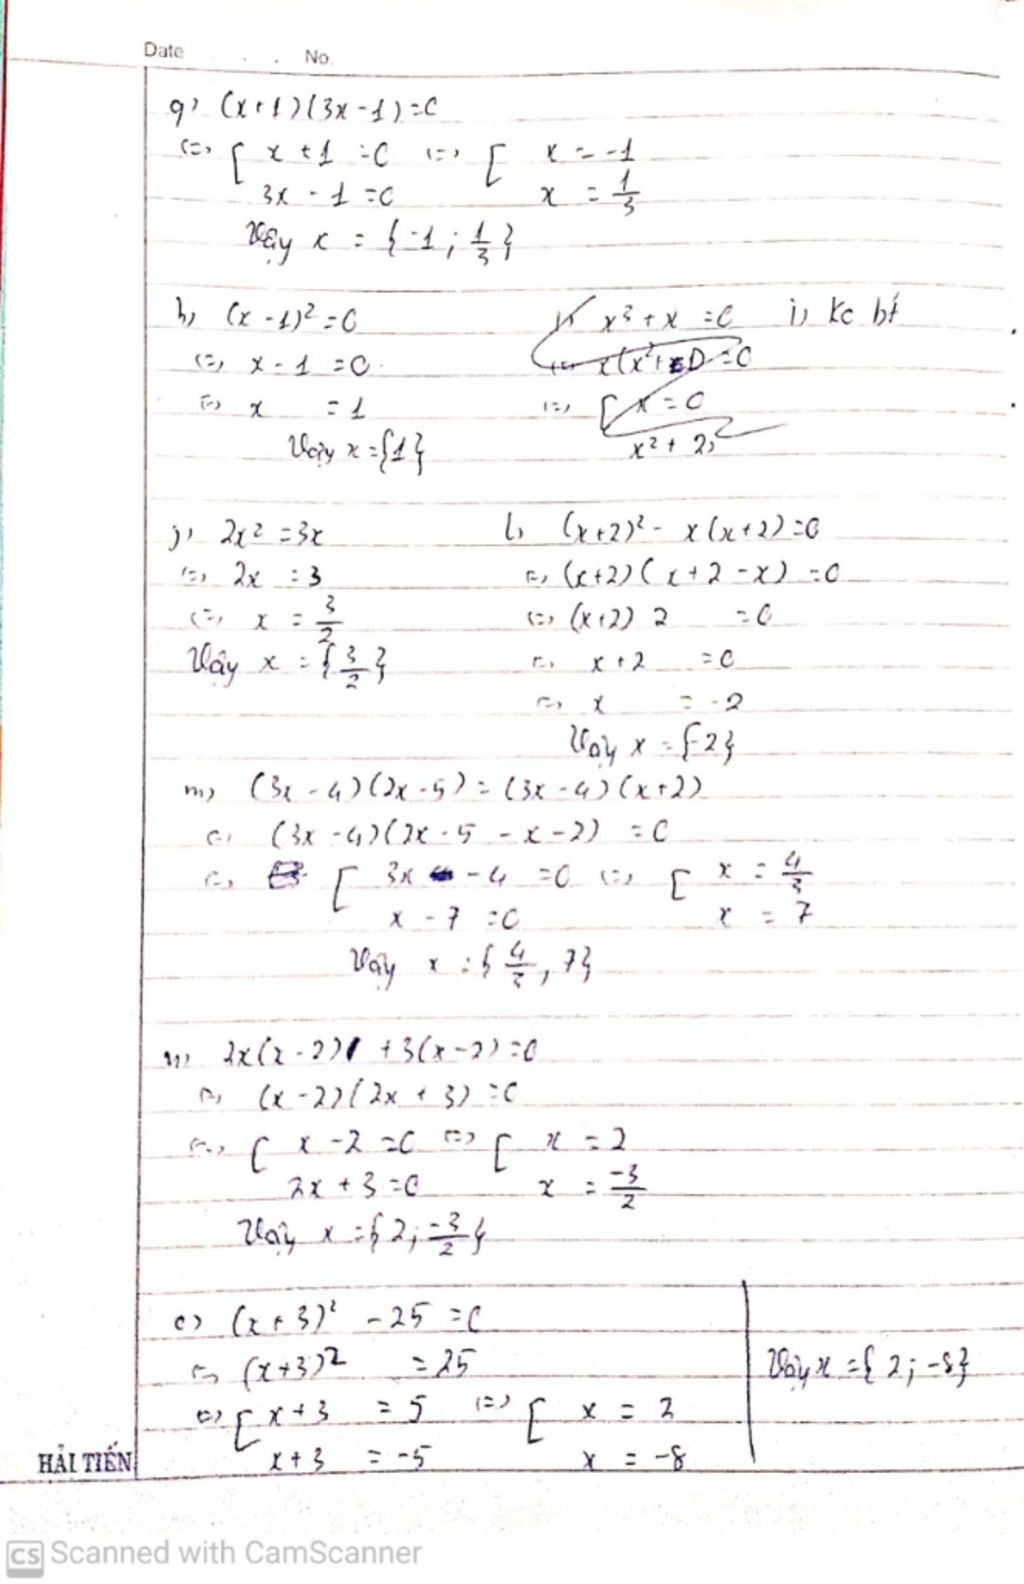 Date No.
g) (x+1)(3x-1)=0
(=) [ x+1=0 (=) [ x=-1
3x-1=0 x = 1/3
Vậy x = {-1; 1/3}
h, (x-1)²=0
(=) x-1=0
(=) x = 1
Vậy x={1}
x³+x=0 i, ko bt
x(x²+ )=0
(=) [ x=0
x²+2
j, 2x²=3x
(=) 2x = 3
(=) x = 3/2
Vậy x = {3/2}
l, (x+2)² - x(x+2)=0
(=) (x+2)(x+2-x)=0
(=) (x+2) 2 =0
(=) x+2 =0
(=) x = -2
Vậy x = {-2}
m, (3x-4)(2x-5)=(3x-4)(x+2)
(=) (3x-4)(2x-5-x-2) =0
(=) [ 3x -4 =0 (=) [ x = 4/3
x-7=0 x = 7
Vậy x = {4/3, 7}
n, 2x(x-2) +3(x-2)=0
(=) (x-2)(2x+3)=0
(=) [ x-2=0 (=) [ x = 2
2x+3=0 x = -3/2
Vậy x={2; -3/2}
o) (x+3)² -25 =0
(=) (x+3)² =25
(=) [ x+3 = 5 (=) [ x = 2
x+3 = -5 x = -8
Vậy x ={2; -8}
HẢI TIẾN
CS Scanned with CamScanner